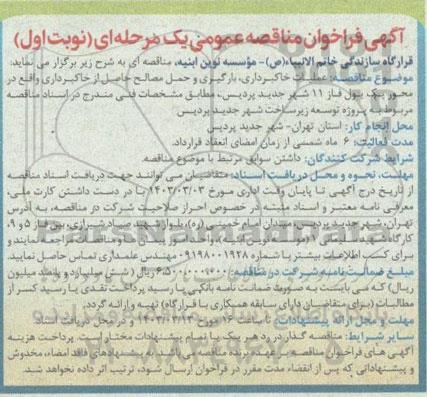 آگهی فراخوان مناقصه عمومی یک مرحله‌ای (نوبت اول)
قرارگاه سازندگی خاتم الانبیاء(ص)- مؤسسه نوین ابنیه، مناقصه ای به شرح زیر برگزار می نماید:
موضوع مناقصه: عملیات خاکبرداری، بارگیری و حمل مصالح حاصل از خاکبرداری واقع در
محور پیک پول فاز ۱۱ شهر جدید پردیس، مطابق مشخصات فنی مندرج در اسناد مناقصه
مربوط به پروژه توسعه زیرساخت شهر جدید پردیس
محل انجام کار: استان تهران- شهر جدید پردیس
مدت فعالیت: ۶ ماه شمسی از زمان امضای انعقاد قرارداد.
شرایط شرکت کنندگان: داشتن سوابق مرتبط با موضوع مناقصه.
مهلت، نحوه و محل دریافت اسناد: متقاضیان می توانند جهت دریافت اسناد مناقصه
از تاریخ درج آگهی تا پایان وقت اداری مورخ ۱۴۰۳/۰۳/۰۳ با در دست داشتن کارت ملی،
معرفی نامه معتبر و اسناد مثبته در خصوص احراز صلاحیت شرکت در مناقصه، به آدرس
تهران، شهر جدید پردیس، میدان امام خمینی (ره)، بلوار شهید صیاد شیرازی، بین فاز ۵ و ۹،
کارگاه شهید سلیمانی ۱ (موسسه نوین ابنیه)، واحد امور پیمان و مناقصات مراجعه نمایند و
برای کسب اطلاعات بیشتر با شماره ۰۹۱۹۸۰۰۱۹۲۸ مهندس علمداری تماس حاصل نمایید.
مبلغ ضمانت نامه شرکت در مناقصه: ۶،۵۰۰،۰۰۰،۰۰۰ ریال (شش میلیارد و پانصد میلیون
ریال) که می بایست به صورت ضمانت نامه بانکی یا رسید پرداخت نقدی یا رسید کسر از
مطالبات (برای متقاضیان دارای سابقه همکاری با قرارگاه) تهیه و ارائه گردد.
مهلت و محل ارائه پیشنهادات: تا ساعت ۱۶ مورخ ۱۴۰۳/۰۳/۱۳ و در محل دریافت اسناد
سایر شرایط: مناقصه گذار در رد هر یک یا تمام پیشنهادات مختار است. پرداخت هزینه
آگهی های فراخوان مناقصه بر عهده برنده مناقصه می باشد. به پیشنهادهای فاقد امضاء، مخدوش
و پیشنهاداتی که پس از انقضاء مدت مقرر در فراخوان ارسال شود، ترتیب اثر داده نخواهد شد.